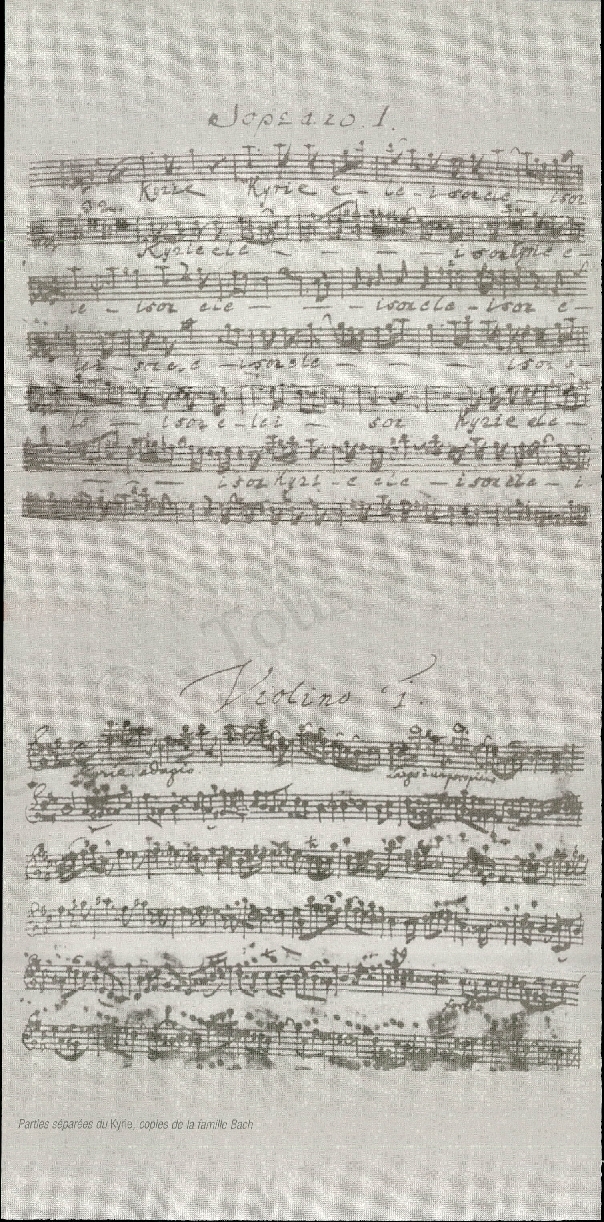 Soprano 1.
Kyrie Kyrie e - le - ison ele - ison
Kyrie ele - - - - ison Kyrie e -
le - ison ele - - - ison ele - ison e -
- ison ele - - - ison
le - ison e - lei - son Kyrie ele -
- - ison Kyri - e ele - ison ele - i
Tous
Violino 1.
Kyrie. adagio.
Largo
Parties séparées du Kyrie, copies de la famille Bach